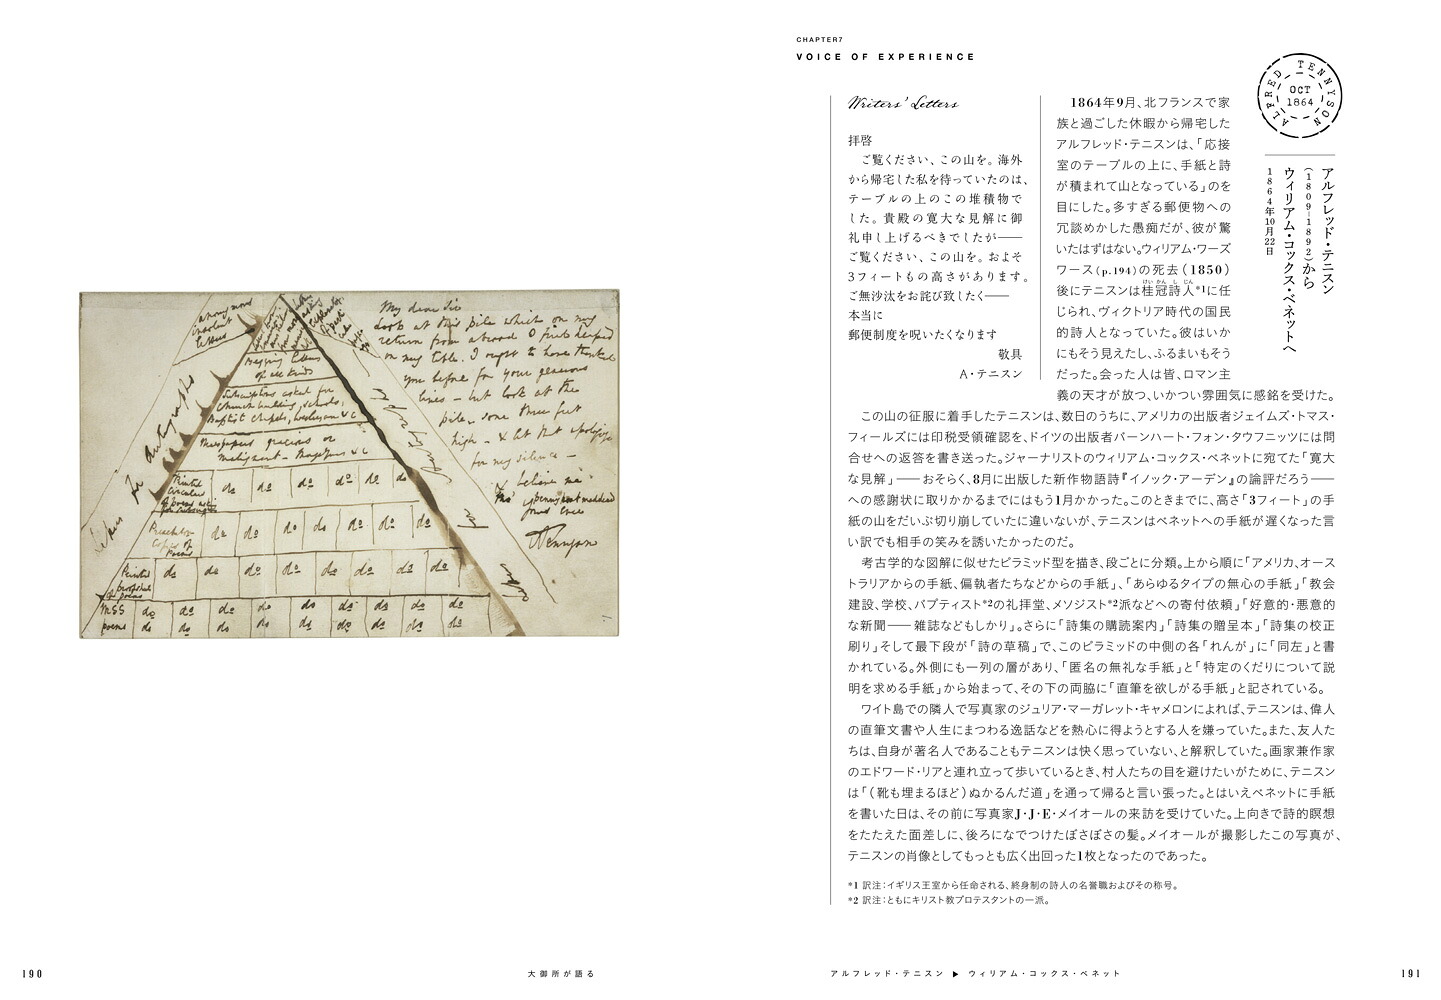 My dear Sir
Look at this pile which on my
return from abroad I find heaped
on my table. I ought to have thanked
you before for your generous
lines — but look at the
pile, some three feet
high — & let that apologize
for my silence —
believe me
Yours ever
ATennyson
anonymous
insolent
letters
for autographs
Begging letters
of all kinds
Subscriptions asked for
Church building, schools,
Baptist Chapels, Wesleyan &c
Newspapers gracious or
malignant — Magazines &c
Printed
do do do do do
Presentation
Copies of
Poems
do do do do do do do
Printed
proofsheets
of poems
do do do do do do do
MSS
poems
do do do do do do do do
do do do do do do do do
190
大御所が語る
CHAPTER7
VOICE OF EXPERIENCE
ALFRED TENNYSON
OCT
1864
アルフレッド・テニスン
(1809–1892)から
ウィリアム・コックス・ベネットへ
1864年10月22日
Writers' Letters
拝啓
ご覧ください、この山を。海外
から帰宅した私を待っていたのは、
テーブルの上のこの堆積物で
した。貴殿の寛大な見解に御
礼申し上げるべきでしたが——
ご覧ください、この山を。およそ
3フィートもの高さがあります。
ご無沙汰をお詫び致したく——
本当に
郵便制度を呪いたくなります
敬具
A・テニスン
1864年9月、北フランスで家
族と過ごした休暇から帰宅した
アルフレッド・テニスンは、「応接
室のテーブルの上に、手紙と詩
が積まれて山となっている」のを
目にした。多すぎる郵便物への
冗談めかした愚痴だが、彼が驚
いたはずはない。ウィリアム・ワーズ
ワース(p.194)の死去(1850)
後にテニスンは桂冠詩人*1に任
じられ、ヴィクトリア時代の国民
的詩人となっていた。彼はいか
にもそう見えたし、ふるまいもそう
だった。会った人は皆、ロマン主
義の天才が放つ、いかつい雰囲気に感銘を受けた。
この山の征服に着手したテニスンは、数日のうちに、アメリカの出版者ジェイムズ・トマス・
フィールズには印税受領確認を、ドイツの出版者バーンハート・フォン・タウフニッツには問
合せへの返答を書き送った。ジャーナリストのウィリアム・コックス・ベネットに宛てた「寛大
な見解」——おそらく、8月に出版した新作物語詩『イノック・アーデン』の論評だろう——
への感謝状に取りかかるまでにはもう1月かかった。このときまでに、高さ「3フィート」の手
紙の山をだいぶ切り崩していたに違いないが、テニスンはベネットへの手紙が遅くなった言
い訳でも相手の笑みを誘いたかったのだ。
考古学的な図解に似せたピラミッド型を描き、段ごとに分類。上から順に「アメリカ、オース
トラリアからの手紙、偏執者たちなどからの手紙」、「あらゆるタイプの無心の手紙」「教会
建設、学校、バプティスト*2の礼拝堂、メソジスト*2派などへの寄付依頼」「好意的・悪意的
な新聞——雑誌などもしかり」。さらに「詩集の購読案内」「詩集の贈呈本」「詩集の校正
刷り」そして最下段が「詩の草稿」で、このピラミッドの中側の各「れんが」に「同左」と書
かれている。外側にも一列の層があり、「匿名の無礼な手紙」と「特定のくだりについて説
明を求める手紙」から始まって、その下の両脇に「直筆を欲しがる手紙」と記されている。
ワイト島での隣人で写真家のジュリア・マーガレット・キャメロンによれば、テニスンは、偉人
の直筆文書や人生にまつわる逸話などを熱心に得ようとする人を嫌っていた。また、友人た
ちは、自身が著名人であることもテニスンは快く思っていない、と解釈していた。画家兼作家
のエドワード・リアと連れ立って歩いているとき、村人たちの目を避けたいがために、テニスン
は「(靴も埋まるほど)ぬかるんだ道」を通って帰ると言い張った。とはいえベネットに手紙
を書いた日は、その前に写真家J・J・E・メイオールの来訪を受けていた。上向きで詩的瞑想
をたたえた面差しに、後ろになでつけたぼさぼさの髪。メイオールが撮影したこの写真が、
テニスンの肖像としてもっとも広く出回った1枚となったのであった。
*1 訳注：イギリス王室から任命される、終身制の詩人の名誉職およびその称号。
*2 訳注：ともにキリスト教プロテスタントの一派。
アルフレッド・テニスン ▶ ウィリアム・コックス・ベネット
191